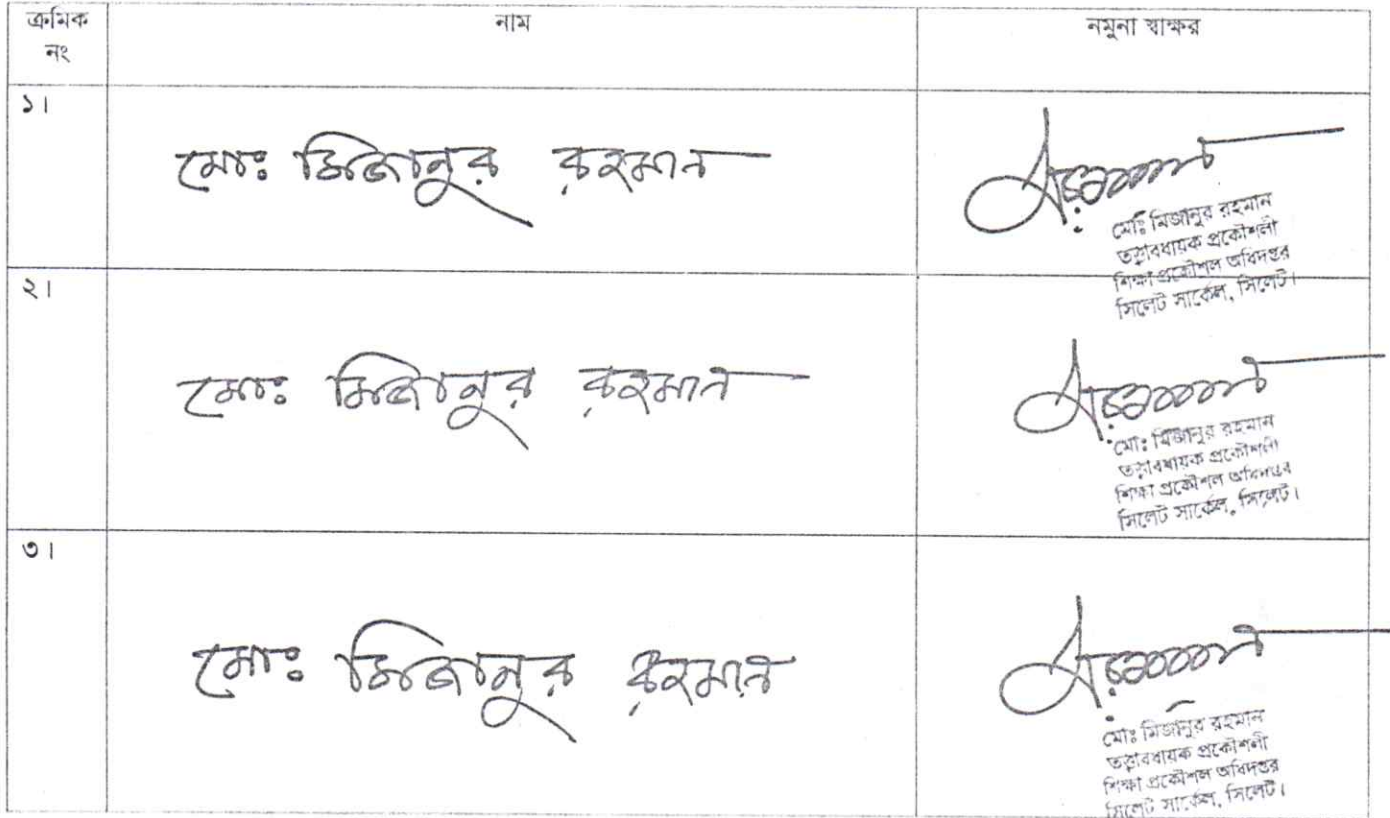 ক্রমিক নং
নাম
নমুনা স্বাক্ষর
১।
মোঃ মিজানুর রহমান
মোঃ মিজানুর রহমান
তত্ত্বাবধায়ক প্রকৌশলী
শিক্ষা প্রকৌশল অধিদপ্তর
সিলেট সার্কেল, সিলেট।
২।
মোঃ মিজানুর রহমান
মোঃ মিজানুর রহমান
তত্ত্বাবধায়ক প্রকৌশলী
শিক্ষা প্রকৌশল অধিদপ্তর
সিলেট সার্কেল, সিলেট।
৩।
মোঃ মিজানুর রহমান
মোঃ মিজানুর রহমান
তত্ত্বাবধায়ক প্রকৌশলী
শিক্ষা প্রকৌশল অধিদপ্তর
সিলেট সার্কেল, সিলেট।